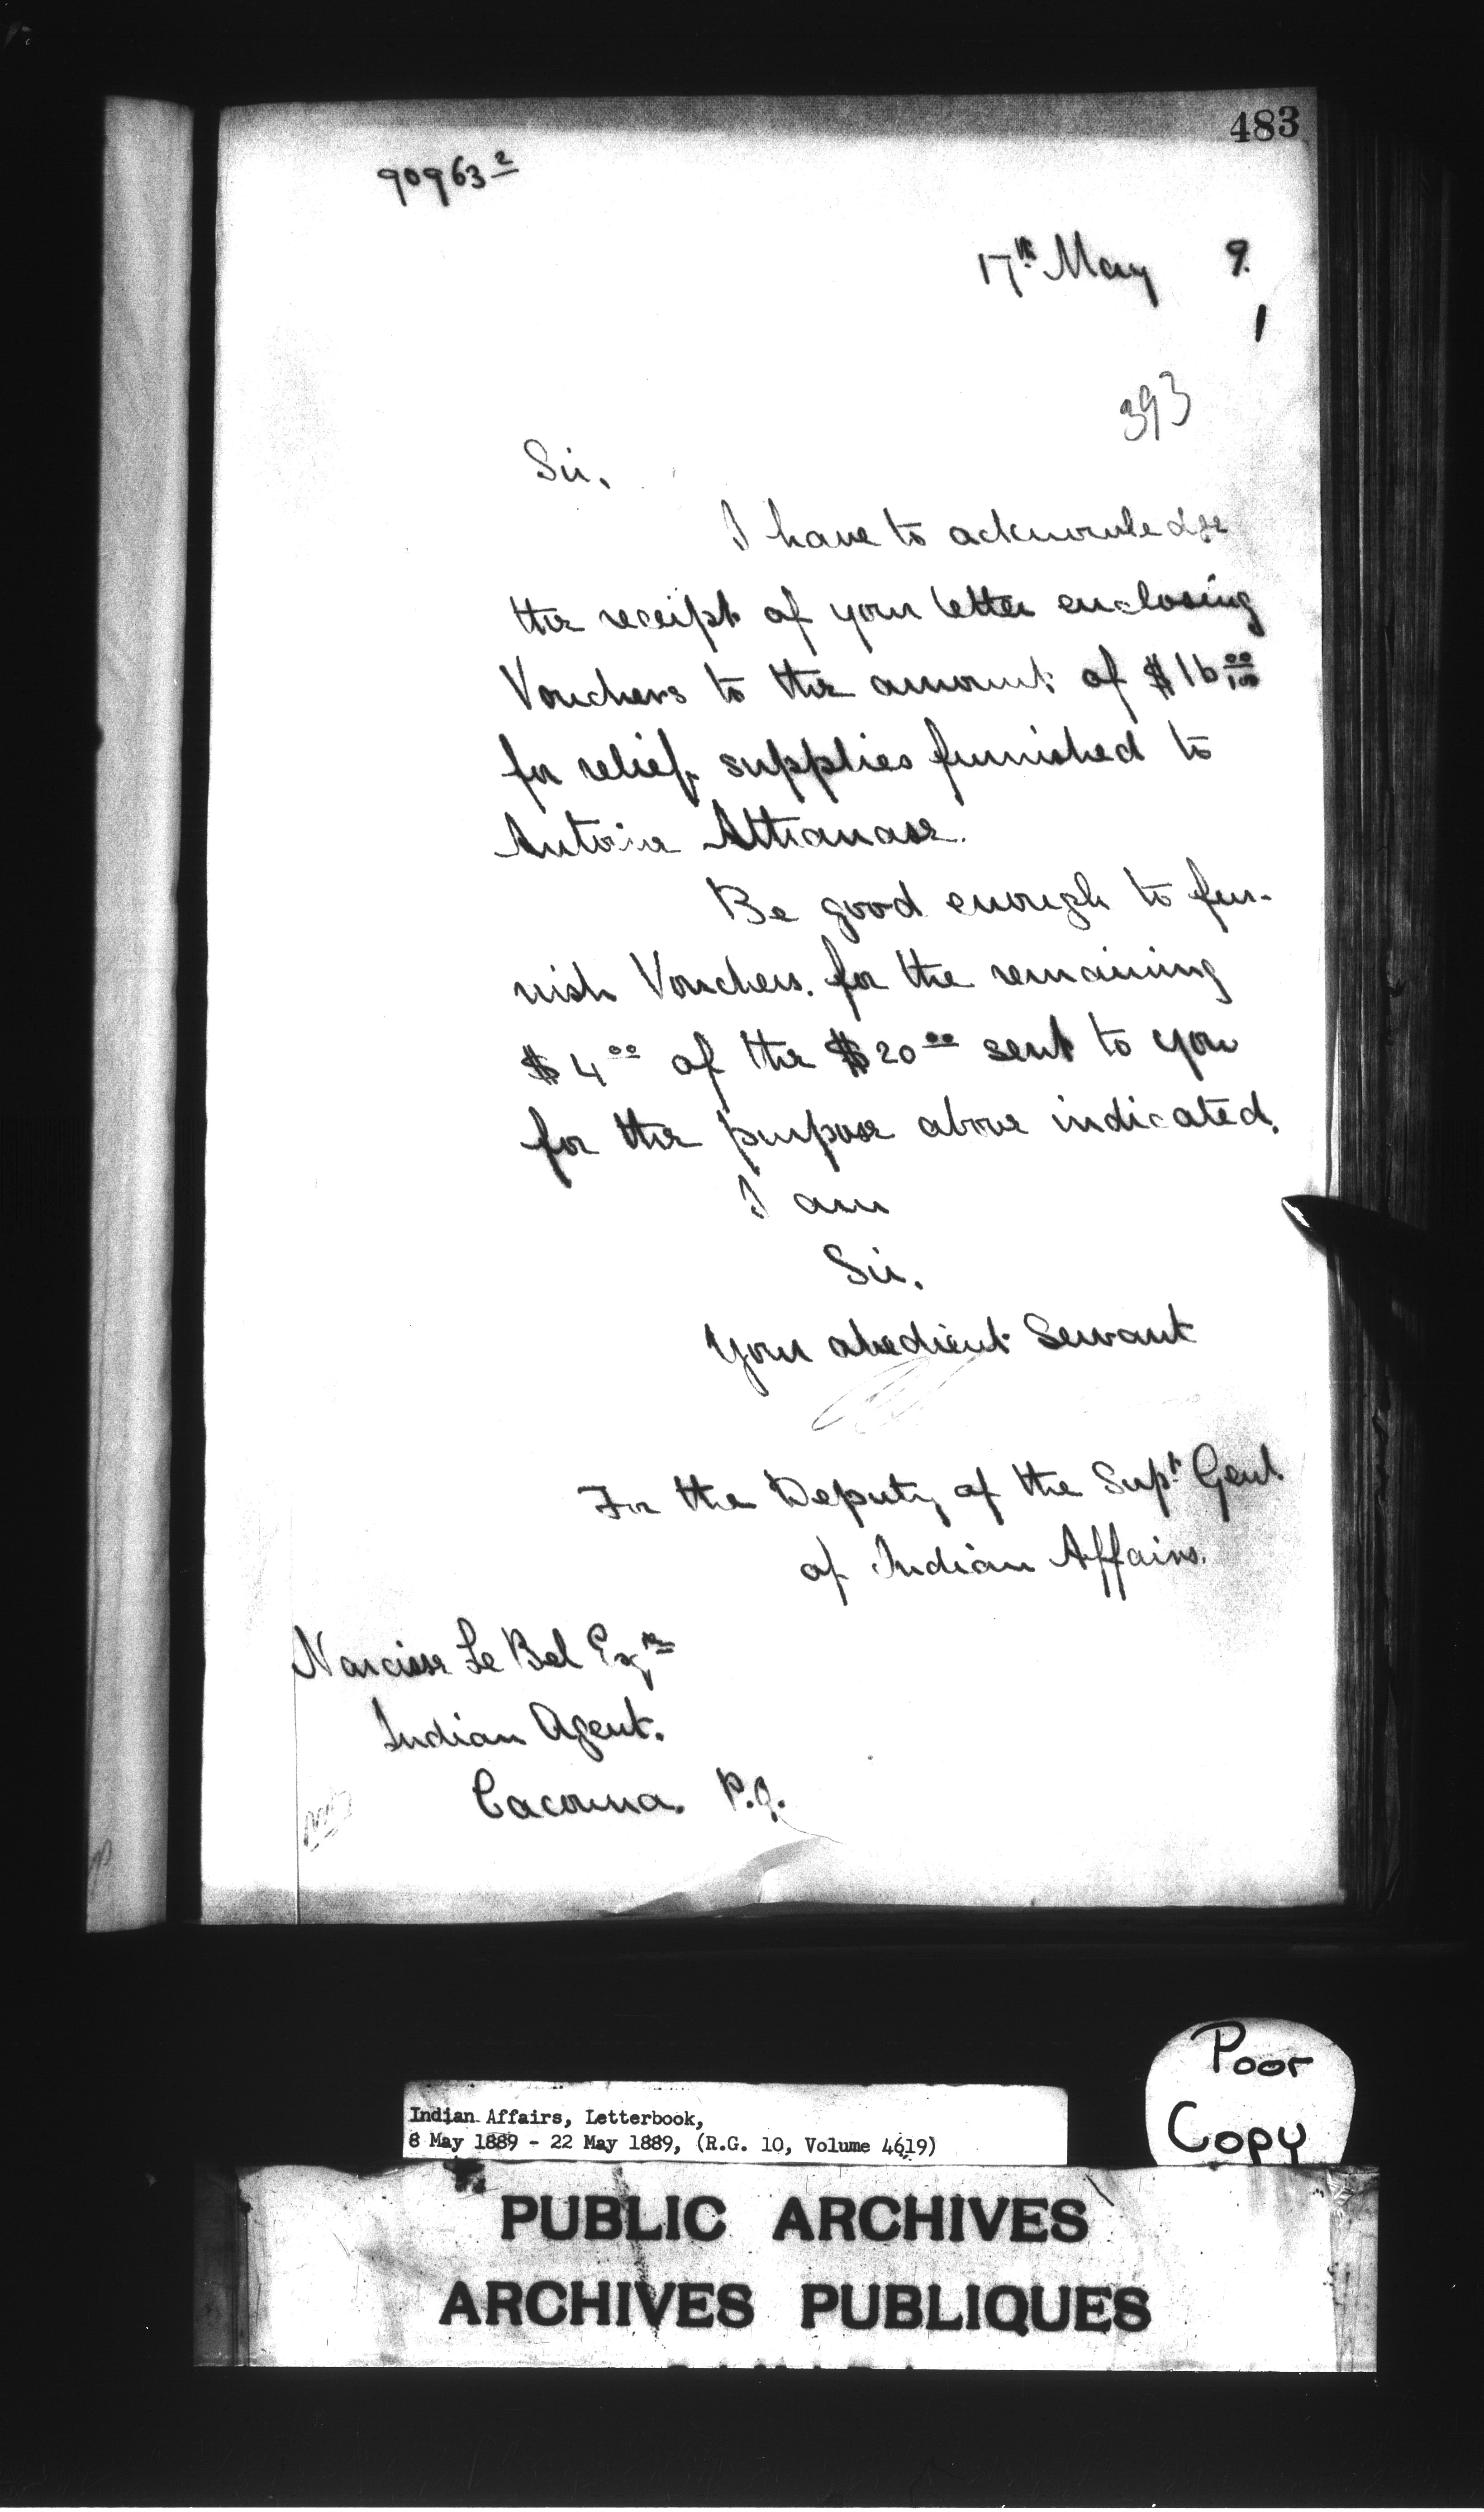 483
90963 2
17th May 9.
1
393
Sir,
I have to acknowledge
the receipt of your letter enclosing
Vouchers to the amount of $16 00/100
for relief supplies furnished to
Antoine Athanase.
Be good enough to fur-
nish Vouchers. for the remaining
$4 00 of the $20 00 sent to you
for the purpose above indicated.
I am
Sir,
Your obedient Servant
For the Deputy of the Supt. Genl.
of Indian Affairs.
Narcisse Le Bel Esqre
Indian Agent.
Cacouna. P.Q.
Poor
Copy
Indian Affairs, Letterbook,
8 May 1889 - 22 May 1889, (R.G. 10, Volume 4619)
PUBLIC ARCHIVES
ARCHIVES PUBLIQUES